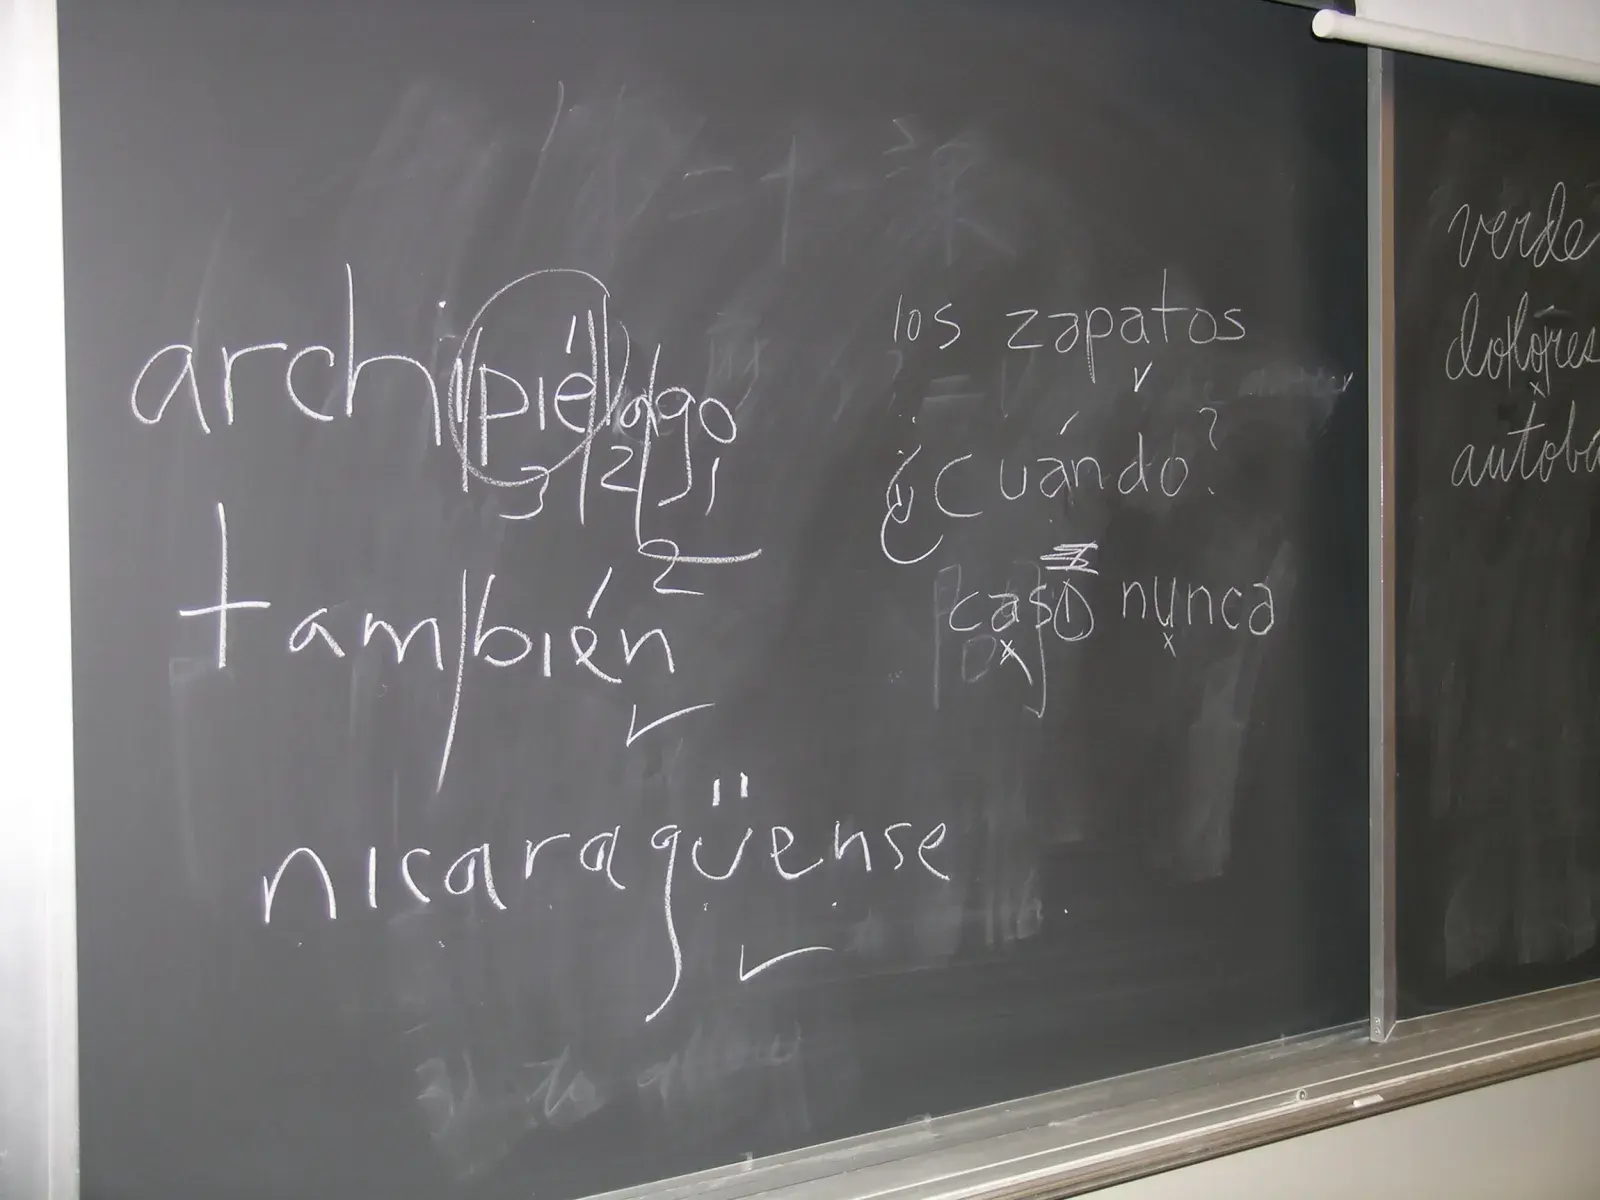 archipiélago
3 2 1
2
también
nicaragüense
los zapatos
¿Cuándo?
casi nunca
verde
dolores
autoba